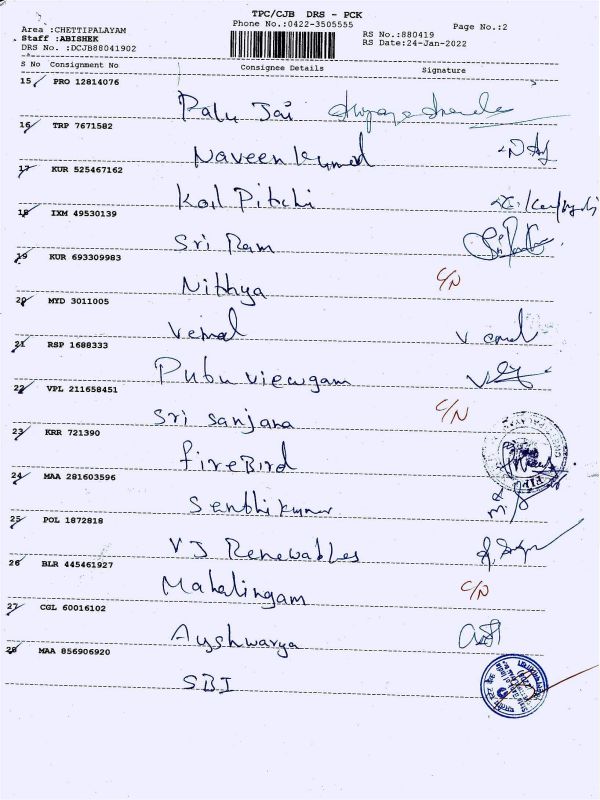 TPC/CJB DRS - PCK
Phone No.:0422-3505555
Page No.:2
Area :CHETTIPALAYAM
Staff :ABISHEK
DRS No. :DCJB88041902
RS No.:880419
RS Date:24-Jan-2022
S No Consignment No Consignee Details Signature
15 PRO 12814076
Palu Jai
16 TRP 7671582
Naveen Kumar
17 KUR 525467162
Koil Pitchi
18 IXM 49530139
Sri Ram
19 KUR 693309983
Nithya C/N
20 MYD 3011005
Vemal
21 RSP 1688333
Putu viewgam
22 VPL 211658451
Sri Sanjana C/N
23 KRR 721390
fireBird
24 MAA 281603596
Senthi kumar
25 POL 1872818
VJ Renewables
26 BLR 445461927
Mahalingam C/N
27 CGL 60016102
Ayshwarya
28 MAA 856906920
SBI